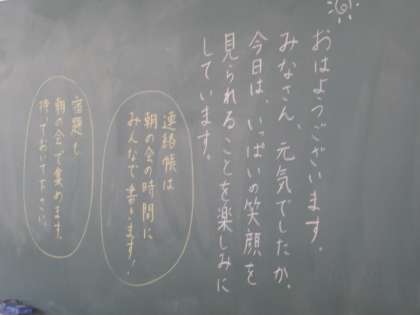 おはようございます。
みなさん、元気でしたか。
今日は、いっぱいの笑顔を
見られることを楽しみに
しています。
連絡帳は
朝の会の時間に
みんなで書きます！
宿題も
朝の会で集めます。
待っておいて下さい。